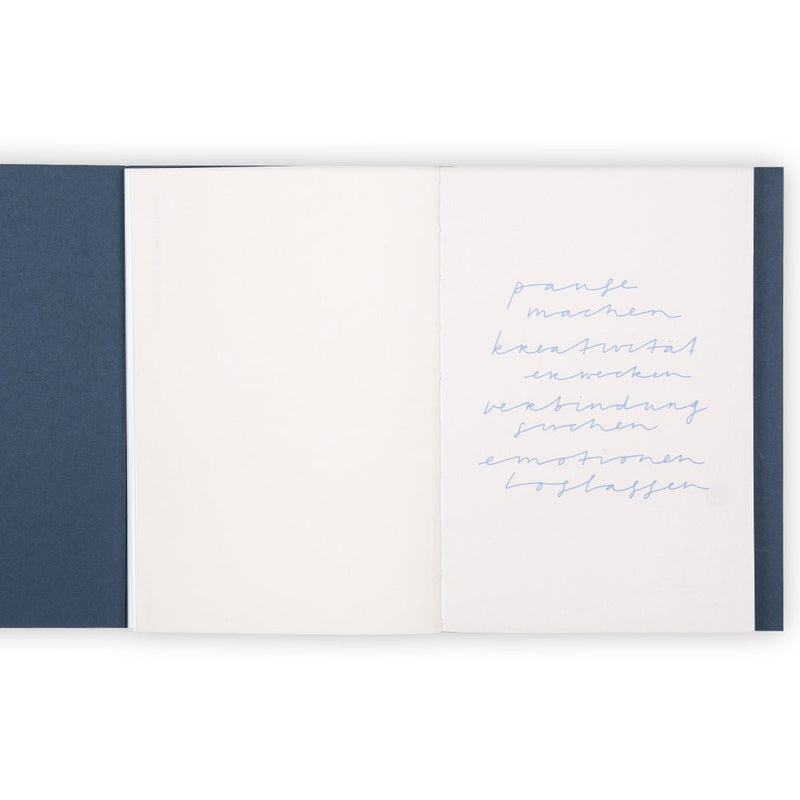 pause
machen
kreativität
erwecken
verbindung
suchen
emotionen
loslassen